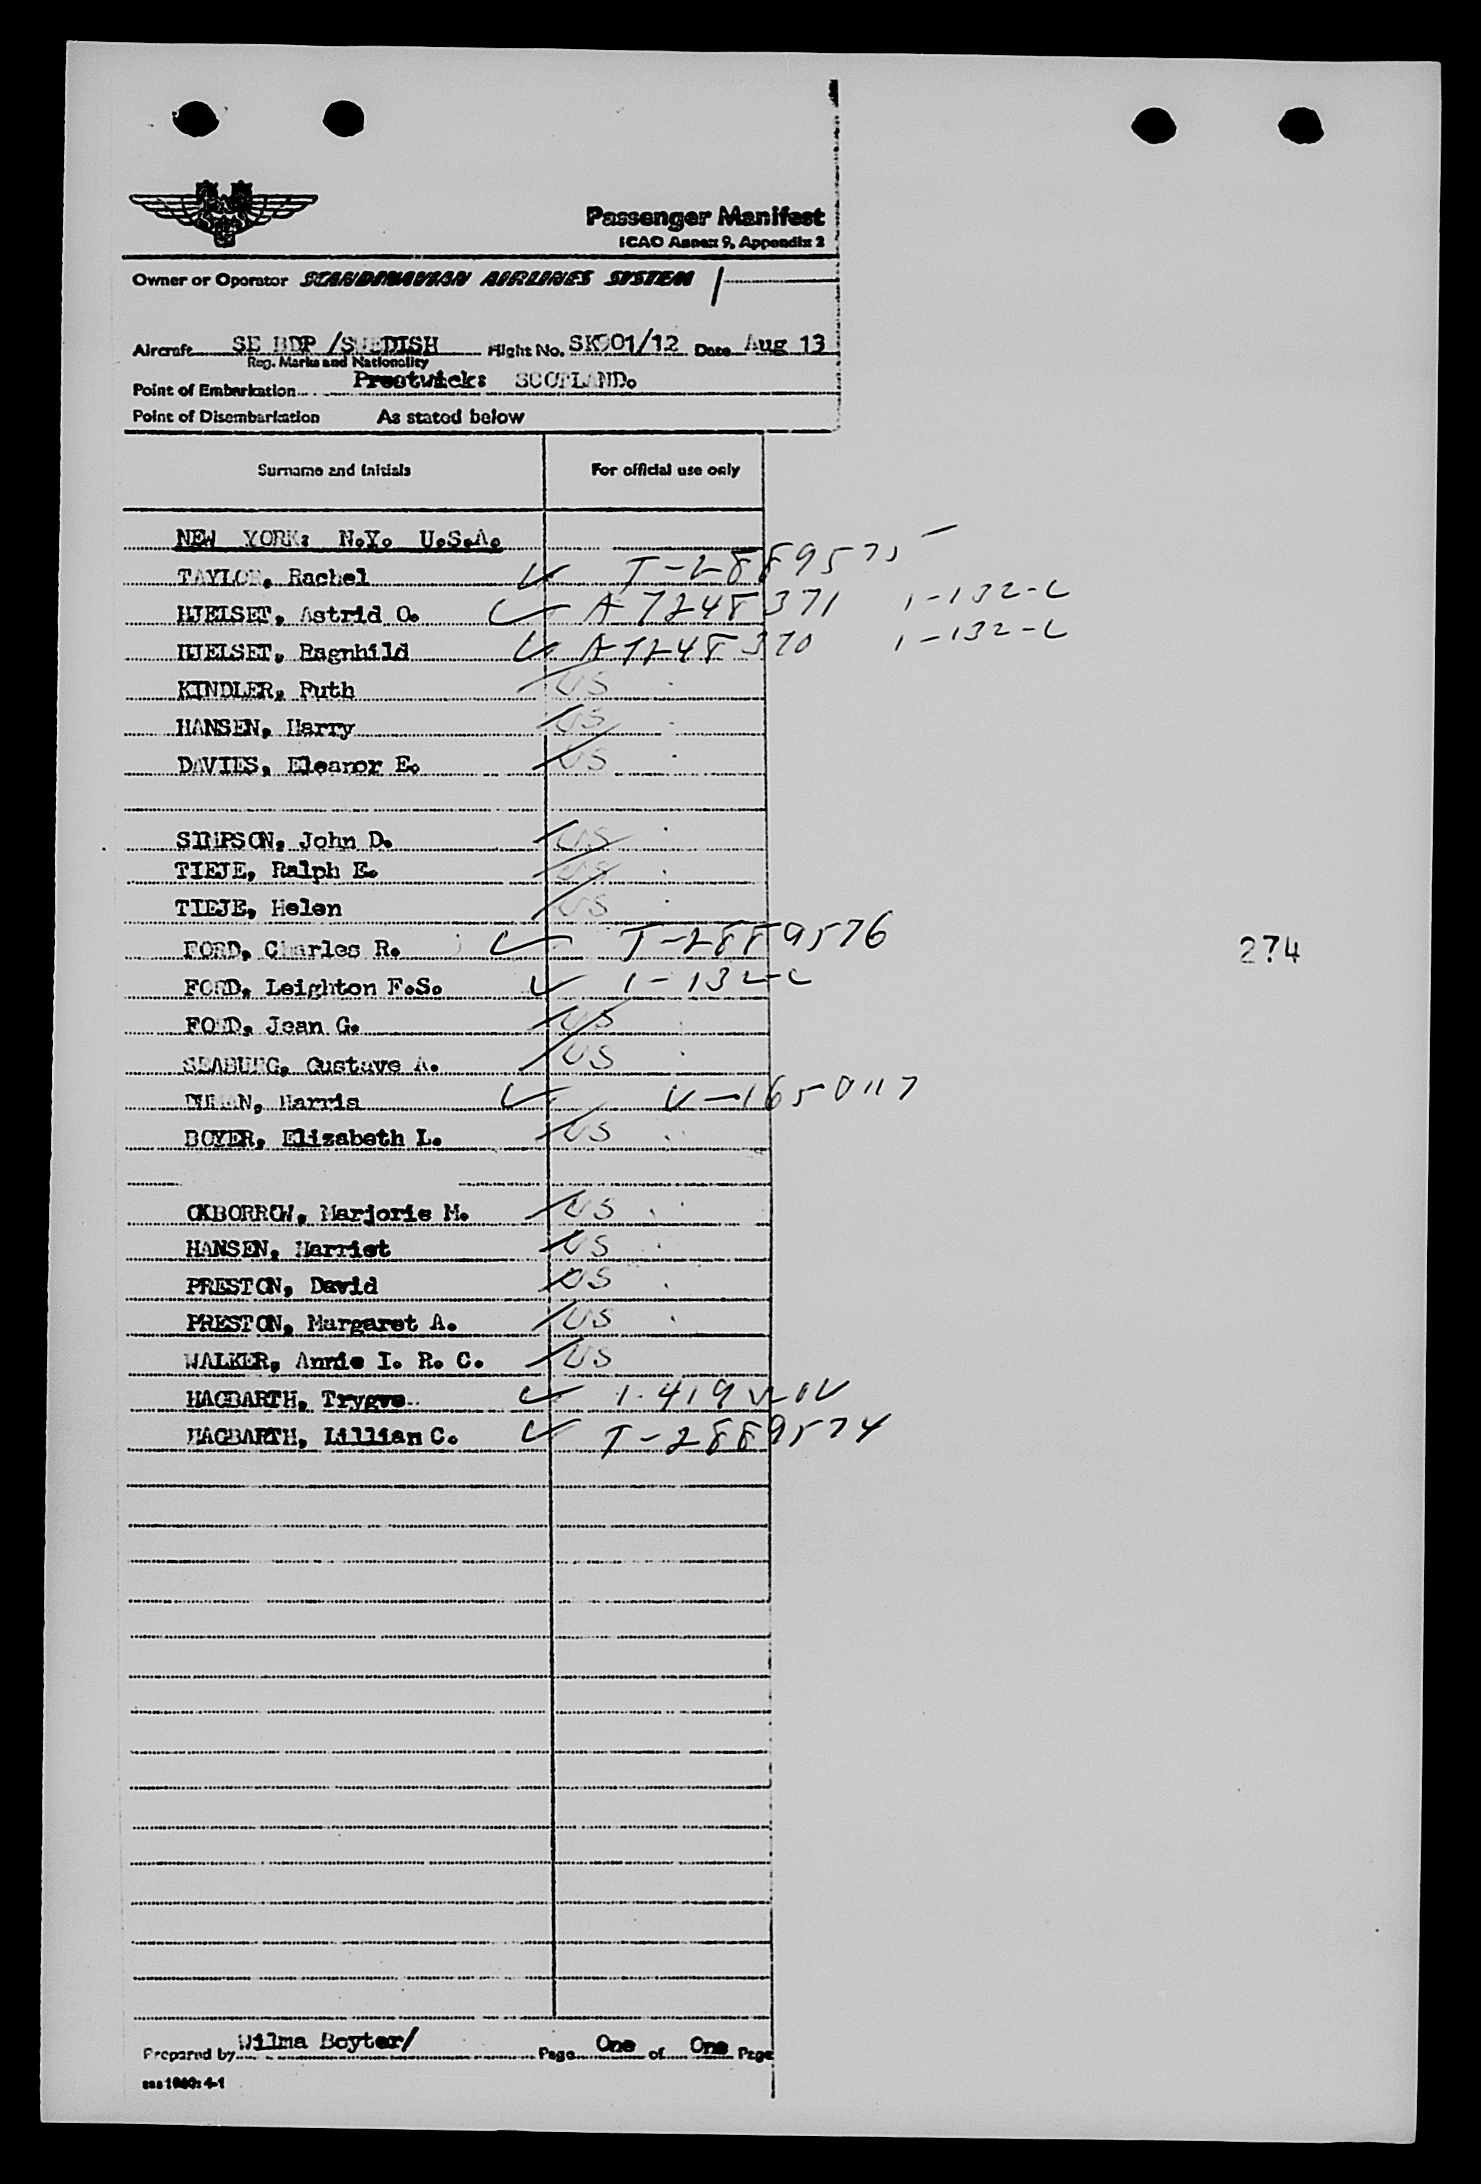 Passenger Manifest
ICAO Annex 9, Appendix 2
Owner or Operator SCANDINAVIAN AIRLINES SYSTEM
Aircraft SE BDP /SWEDISH Flight No. SK901/12 Date Aug 13
Reg. Marks and Nationality
Point of Embarkation Prestwick: SCOTLAND.
Point of Disembarkation As stated below
Surname and initials For official use only
NEW YORK: N.Y. U.S.A.
TAYLOR, Rachel T-2889575
HJELSET, Astrid O. A 7248371 1-132-C
HJELSET, Ragnhild A 7248370 1-132-C
KINDLER, Ruth US
HANSEN, Harry US
DAVIES, Eleanor E. US
SIMPSON, John D. US
TIEJE, Ralph E. US
TIEJE, Helen US
FORD, Charles R. T-2889576
274
FORD, Leighton F.S. 1-132-C
FORD, Jean G. US
SEABURG, Gustave A. US
Harris V-1650117
BOYER, Elizabeth L. US
OXBORROW, Marjorie M. US
HANSEN, Harriet US
PRESTON, David US
PRESTON, Margaret A. US
WALKER, Annie I. R. C. US
HAGBARTH, Trygve 1-419
HAGBARTH, Lillian C. T-2889574
Prepared by Wilma Boyter/ Page One of One Page
sas 1960: 4-1